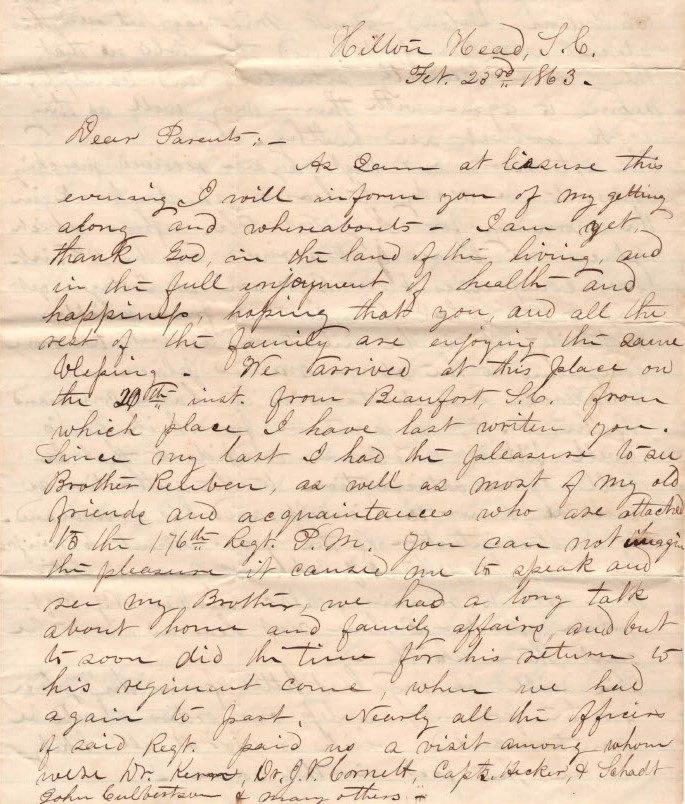 Hilton Head, S.C.
Fet. 23rd 1863.
Dear Parents:-
As I am at liesure this
evening I will inform you of my getting
along and whereabouts - I am yet,
thank God, in the land of the living, and
in the full enjoyment of health and
happiness, hoping that you, and all the
rest of the family are enjoying the same
blessing. We arrived at this place on
the 20th inst. from Beaufort, S.C. from
which place I have last writen you.
Since my last I had the pleasure to see
Brother Reuben, as well as most of my old
friends and acquaintances who are attached
to the 176th Regt. P.M. You can not imagin
the pleasure it caused me to speak and
see my Brother, we had a long talk
about home and family affairs, and but
to soon did the time for his return to
his regiment come, when we had
again to part. Nearly all the officers
of said Regt. paid us a visit among whom
were Dr. Kern, Dr. J.P. Cornett, Capts. Hecker, & Schadt
John Culbertson & many others.